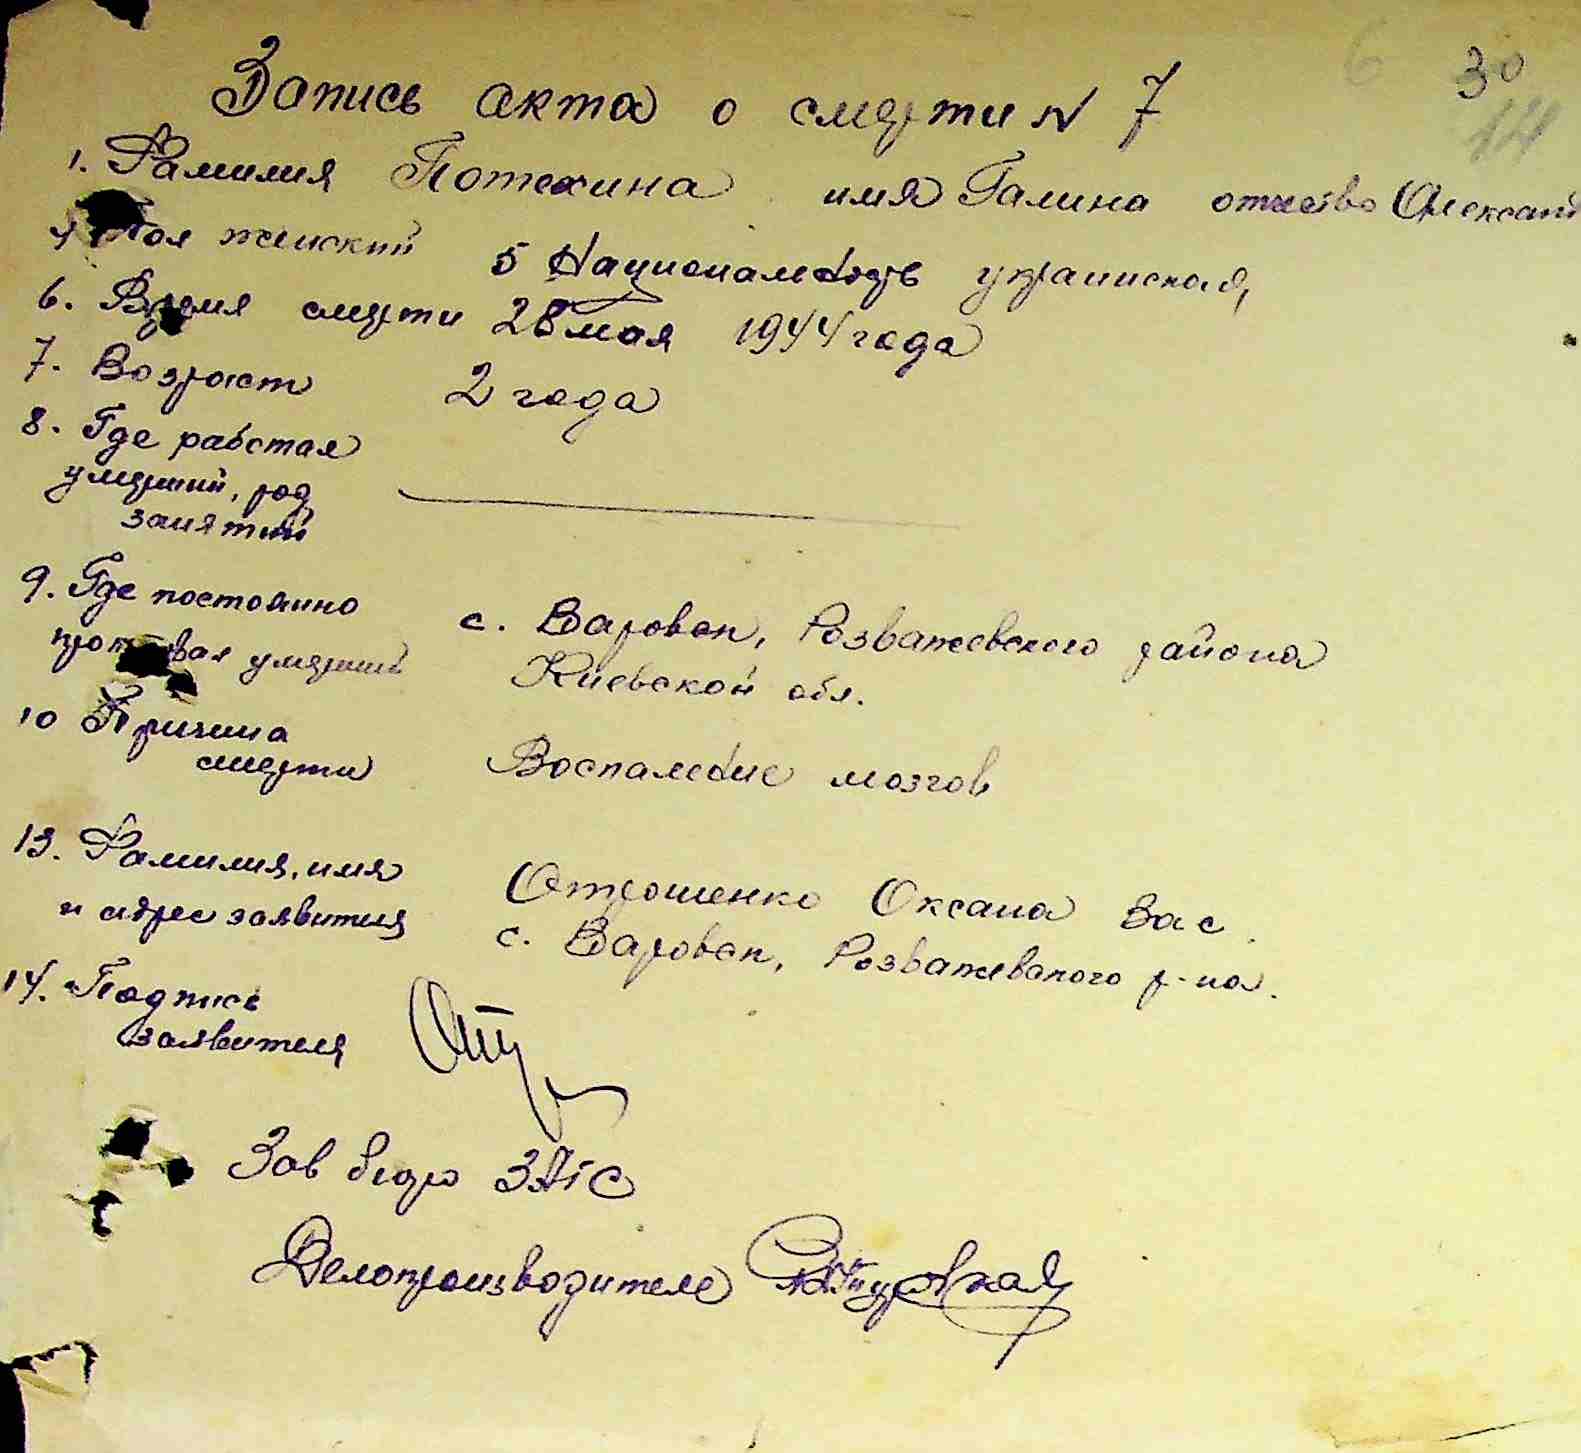 30
14
Запись акта о смерти N 7
1. Фамилия Потехина имя Галина отчество Олександ
4 Пол женский 5 Национальность украинская,
6. Время смерти 28 мая 1944 года
7. Возраст 2 года
8. Где работал
умерший, род
занятий
9. Где постоянно с. Варовск, Розважевского района
умерший Киевской обл.
10 Причина
смерти Воспаление мозгов
13. Фамилия, имя Отрошенко Оксана Вас
и адрес заявителя с. Варовск, Розважевского р-на.
14. Подпись
заявителя
Зав бюро ЗАГС
Делопроизводитель